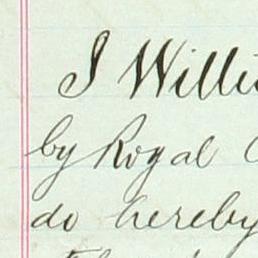 I Willi
by Royal
do hereby